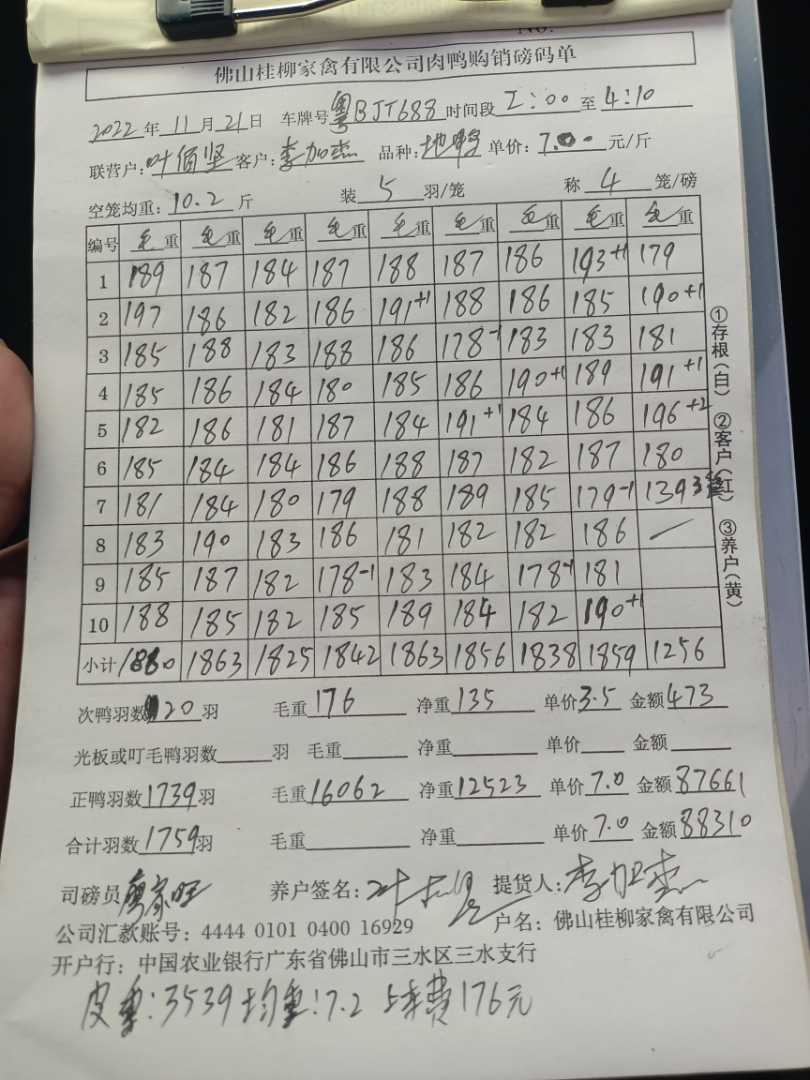 No.
佛山桂柳家禽有限公司肉鸭购销磅码单
2022年11月21日 车牌号粤BJT688时间段2:00至4:10
联营户:叶佰坚客户:李加杰 品种:地鸭 单价:7.00元/斤
空笼均重:10.2斤 装5羽/笼 称4笼/磅
编号 毛重 毛重 毛重 毛重 毛重 毛重 毛重 毛重 毛重
1 189 187 184 187 188 187 186 193+1 179
2 197 186 182 186 191+1 188 186 185 190+1
3 185 188 183 188 186 178-1 183 183 181
4 185 186 184 180 185 186 190+1 189 191+1
5 182 186 181 187 184 191+1 184 186 196+2
6 185 184 184 186 188 187 182 187 180
7 181 184 180 179 188 189 185 179-1 139 3笼
8 183 190 183 186 181 182 182 186
9 185 187 182 178-1 183 184 178-1 181
10 188 185 182 185 189 184 182 190+1
小计 1860 1863 1825 1842 1863 1856 1838 1859 1256
次鸭羽数20羽 毛重176 净重135 单价3.5 金额473
光板或叮毛鸭羽数羽 毛重 净重 单价 金额
正鸭羽数1739羽 毛重16062 净重12523 单价7.0 金额87661
合计羽数1759羽 毛重 净重 单价7.0 金额88310
司磅员廖家旺 养户签名: 提货人:李加杰
公司汇款账号:4444 0101 0400 16929 户名:佛山桂柳家禽有限公司
开户行:中国农业银行广东省佛山市三水区三水支行
皮重:3539 均重:7.2 上车费176元
①存根(白) ②客户(红) ③养户(黄)